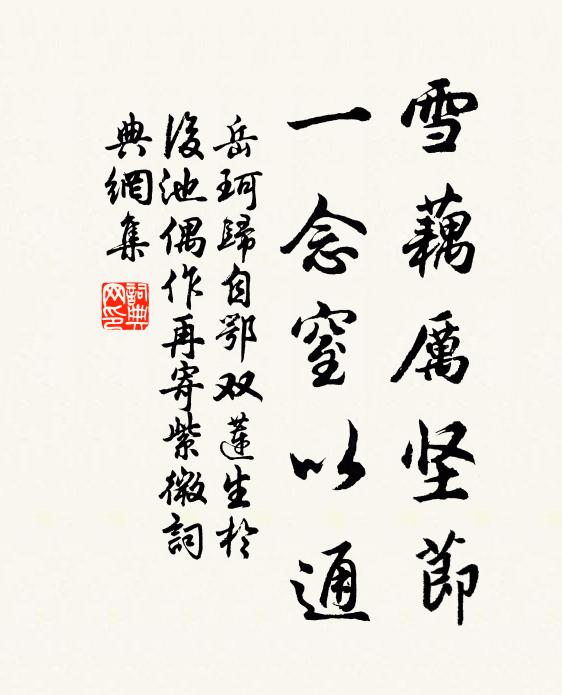 雪藕厲坚節
一念窒以通
岳珂歸自鄂双蓮生於
後池偶作再寄紫微詞
典網集
詞典网印